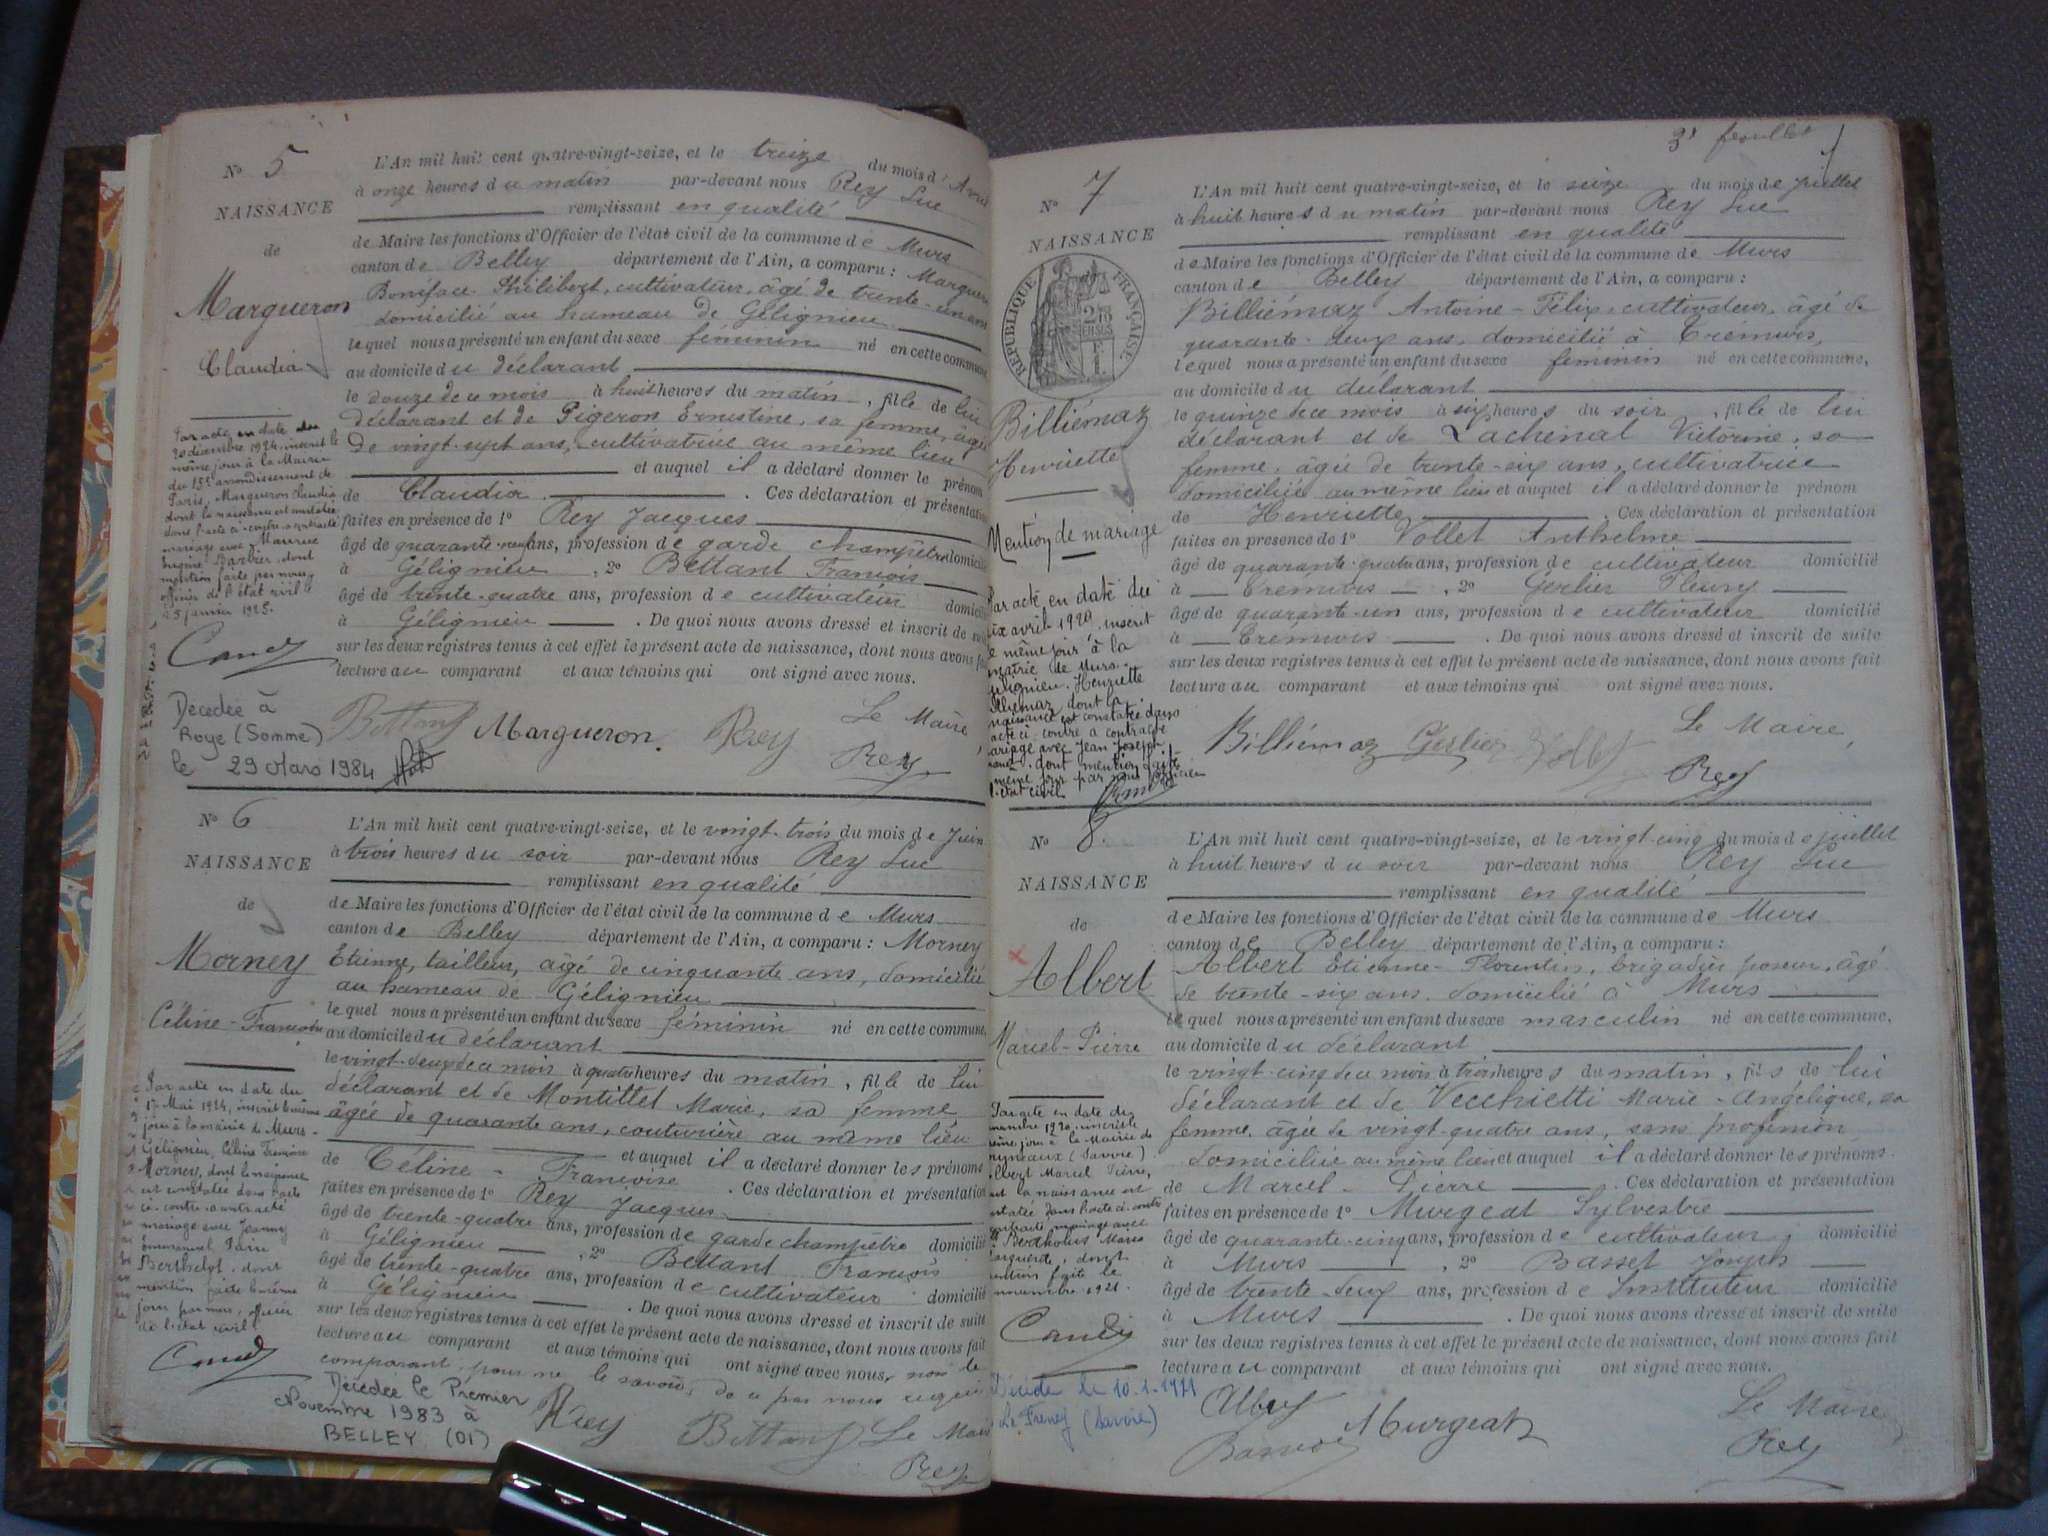 3e feuillet
No 5
NAISSANCE
de
Margueron
Claudia
L'An mil huit cent quatre-vingt-seize, et le treize du mois d'Avril
à onze heures du matin par-devant nous Rey Luc
remplissant en qualité
de Maire les fonctions d'Officier de l'état civil de la commune de Murs
canton de Belley département de l'Ain, a comparu : Margueron
Boniface Philibert, cultivateur, âgé de trente-un ans
domicilié au hameau de Gélignieu
lequel nous a présenté un enfant du sexe féminin né en cette commune,
au domicile du déclarant
le douze de ce mois à huit heures du matin, fille de lui
déclarant et de Pigeron Ernestine, sa femme, âgée
de vingt-sept ans, cultivatrice au même lieu
et auquel il a déclaré donner le prénom
de Claudia. Ces déclaration et présentation
faites en présence de 1o Rey Jacques
âgé de quarante-neuf ans, profession de garde champêtre domicilié
à Gélignieu, 2o Bettant François
âgé de trente-quatre ans, profession de cultivateur domicilié
à Gélignieu. De quoi nous avons dressé et inscrit de suite
sur les deux registres tenus à cet effet le présent acte de naissance, dont nous avons fait
lecture au comparant et aux témoins qui ont signé avec nous.
Bettant Margueron. Rey Le Maire,
Rey
Par acte en date du
20 décembre 1924, inscrit le
même jour à la Mairie
du 15e arrondissement de
Paris, Margueron Claudia
dont la naissance est constatée
dans l'acte ci-contre a contracté
mariage avec Maurice
Eugène Barbier, dont
mention faite par nous,
officier de l'état civil le
25 janvier 1925.
Candy
Décédée à
Roye (Somme)
le 29 Mars 1984
No 6
NAISSANCE
de
Morney
Céline-Françoise
L'An mil huit cent quatre-vingt-seize, et le vingt-trois du mois de Juin
à trois heures du soir par-devant nous Rey Luc
remplissant en qualité
de Maire les fonctions d'Officier de l'état civil de la commune de Murs
canton de Belley département de l'Ain, a comparu : Morney
Etienne, tailleur, âgé de cinquante ans, domicilié
au hameau de Gélignieu
lequel nous a présenté un enfant du sexe féminin né en cette commune,
au domicile du déclarant
le vingt-deux de ce mois à quatre heures du matin, fille de lui
déclarant et de Montillet Marie, sa femme
âgée de quarante ans, couturière au même lieu
et auquel il a déclaré donner les prénoms
de Céline-Françoise. Ces déclaration et présentation
faites en présence de 1o Rey Jacques
âgé de trente-quatre ans, profession de garde champêtre domicilié
à Gélignieu, 2o Bettant François
âgé de trente-quatre ans, profession de cultivateur domicilié
à Gélignieu. De quoi nous avons dressé et inscrit de suite
sur les deux registres tenus à cet effet le présent acte de naissance, dont nous avons fait
lecture au comparant et aux témoins qui ont signé avec nous, non le
comparant, pour ne le savoir, de ce par nous requis
Rey Bettant Le Maire
Rey
Par acte en date du
17 Mai 1924, inscrit le même
jour à la mairie de Murs-
Gélignieu, Céline Françoise
Morney, dont la naissance
est constatée dans l'acte
ci-contre a contracté
mariage avec Jeanny
Emmanuel
Berthelot, dont
mention faite le même
jour par nous, officier
de l'état civil.
Candy
Décédée le Premier
Novembre 1983 à
BELLEY (01)
No 7
NAISSANCE
RÉPUBLIQUE FRANÇAISE
Billiémaz
Henriette
L'An mil huit cent quatre-vingt-seize, et le seize du mois de juillet
à huit heures du matin par-devant nous Rey Luc
remplissant en qualité
de Maire les fonctions d'Officier de l'état civil de la commune de Murs
canton de Belley département de l'Ain, a comparu :
Billiémaz Antoine-Félix, cultivateur, âgé de
quarante-deux ans, domicilié à Crémurs,
lequel nous a présenté un enfant du sexe féminin né en cette commune,
au domicile du déclarant
le quinze de ce mois à six heures du soir, fille de lui
déclarant et de Lachenal Victorine, sa
femme, âgée de trente-six ans, cultivatrice
domiciliée au même lieu et auquel il a déclaré donner le prénom
de Henriette. Ces déclaration et présentation
faites en présence de 1o Vollet Anthelme
âgé de quarante-quatre ans, profession de cultivateur domicilié
à Crémurs, 2o Gerlier Fleury
âgé de quarante-un ans, profession de cultivateur domicilié
à Crémurs. De quoi nous avons dressé et inscrit de suite
sur les deux registres tenus à cet effet le présent acte de naissance, dont nous avons fait
lecture au comparant et aux témoins qui ont signé avec nous.
Billiémaz Gerlier Vollet Le Maire,
Rey
Mention de mariage
Par acte en date du
dix avril 1920 inscrit
le même jour à la
mairie de Murs-
Gélignieu, Henriette
Billiémaz dont la
naissance est constatée dans
l'acte ci-contre a contracté
mariage avec Jean Joseph
dont mention faite
même jour par nous officier
l'état civil
No 8.
NAISSANCE
de
Albert
Marcel-Pierre
L'An mil huit cent quatre-vingt-seize, et le vingt-cinq du mois de juillet
à huit heures du soir par-devant nous Rey Luc
remplissant en qualité
de Maire les fonctions d'Officier de l'état civil de la commune de Murs
canton de Belley département de l'Ain, a comparu :
Albert Etienne-Florentin, brigadier poseur, âgé
de trente-six ans, domicilié à Murs
lequel nous a présenté un enfant du sexe masculin né en cette commune,
au domicile du déclarant
le vingt-cinq de ce mois à trois heures du matin, fils de lui
déclarant et de Vecchietti Marie-Angélique, sa
femme, âgée de vingt-quatre ans, sans profession
domiciliée au même lieu et auquel il a déclaré donner les prénoms
de Marcel-Pierre. Ces déclaration et présentation
faites en présence de 1o Murgeat Sylvestre
âgé de quarante-cinq ans, profession de cultivateur domicilié
à Murs, 2o Basset
âgé de trente-deux ans, profession de Instituteur domicilié
à Murs. De quoi nous avons dressé et inscrit de suite
sur les deux registres tenus à cet effet le présent acte de naissance, dont nous avons fait
lecture au comparant et aux témoins qui ont signé avec nous.
Albert Murgeat Le Maire
Rey
Par acte en date du
novembre 1920, inscrit le
même jour à la Mairie de
(Savoie)
Albert Marcel Pierre,
dont la naissance est
constatée dans l'acte ci-contre
contracté mariage avec
Marie
Marguerite, dont
mention faite le
novembre 1921.
Candy
Décédé le 10.1.1971
Le Freney (Savoie)